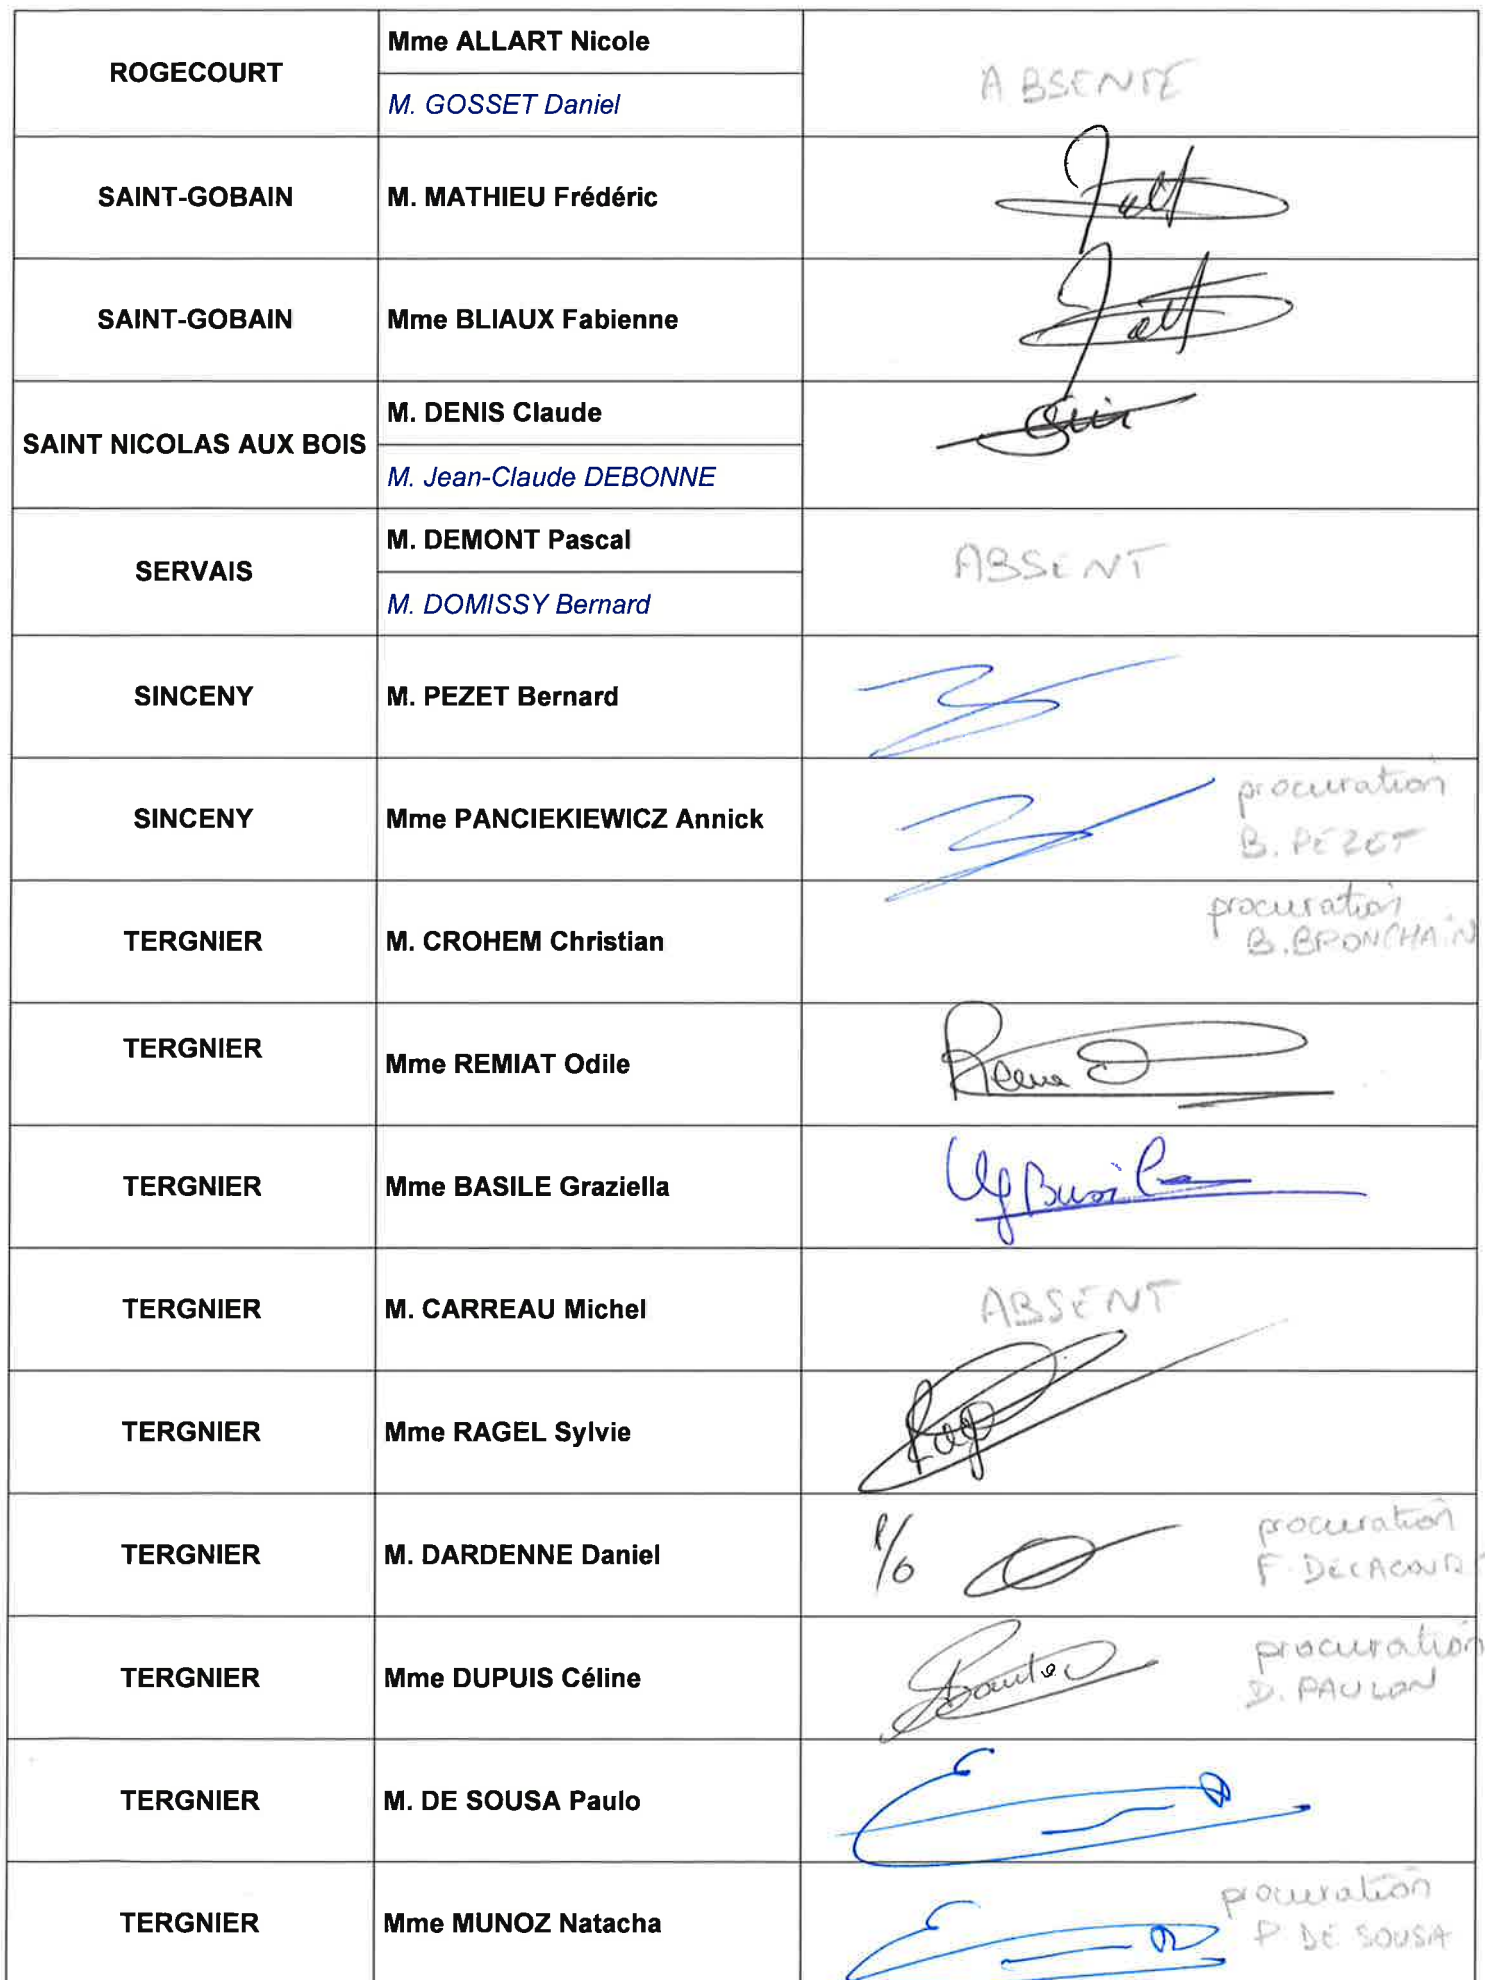 ROGECOURT
Mme ALLART Nicole
M. GOSSET Daniel
ABSENTE
SAINT-GOBAIN
M. MATHIEU Frédéric
SAINT-GOBAIN
Mme BLIAUX Fabienne
SAINT NICOLAS AUX BOIS
M. DENIS Claude
M. Jean-Claude DEBONNE
SERVAIS
M. DEMONT Pascal
M. DOMISSY Bernard
ABSENT
SINCENY
M. PEZET Bernard
SINCENY
Mme PANCIEKIEWICZ Annick
procuration
B. PEZET
TERGNIER
M. CROHEM Christian
procuration
B. BRONCHAIN
TERGNIER
Mme REMIAT Odile
TERGNIER
Mme BASILE Graziella
TERGNIER
M. CARREAU Michel
ABSENT
TERGNIER
Mme RAGEL Sylvie
TERGNIER
M. DARDENNE Daniel
P/O
procuration
F. DELACOURT
TERGNIER
Mme DUPUIS Céline
procuration
D. PAULON
TERGNIER
M. DE SOUSA Paulo
TERGNIER
Mme MUNOZ Natacha
procuration
P. DE SOUSA